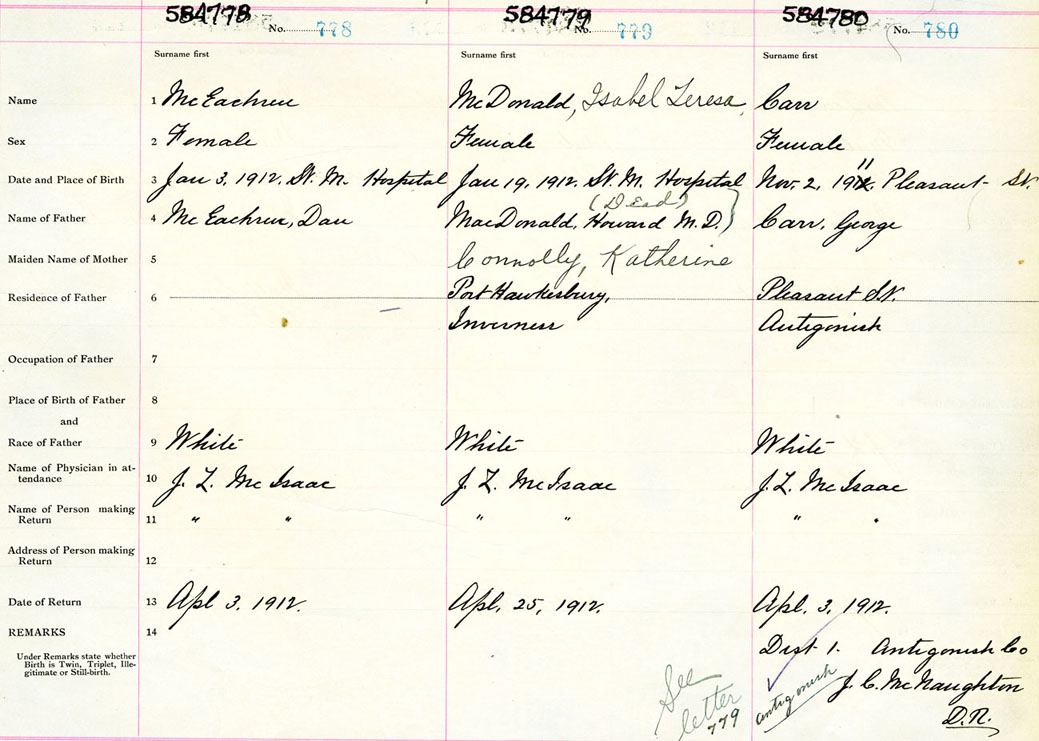 584778 584779 584780
No. 778 No. 779 No. 780
Surname first Surname first Surname first
Name 1 McEachren McDonald, Isabel Teresa, Carr
Sex 2 Female Female Female
Date and Place of Birth 3 Jan 3, 1912. St. M. Hospital Jan 19, 1912. St. M. Hospital Nov. 2, 1911. Pleasant St.
(Dead)
Name of Father 4 McEachren, Dan MacDonald, Howard M.D.) Carr, George
Maiden Name of Mother 5 Connolly, Katherine
Residence of Father 6 Port Hawkesbury, Pleasant St.
Inverness Antigonish
Occupation of Father 7
Place of Birth of Father 8
and
Race of Father 9 White White White
Name of Physician in at-
tendance 10 J. L. McIsaac J. L. McIsaac J. L. McIsaac
Name of Person making
Return 11 " " " " " "
Address of Person making
Return 12
Date of Return 13 Apl 3, 1912. Apl. 25, 1912. Apl. 3, 1912.
REMARKS 14
Under Remarks state whether
Birth is Twin, Triplet, Ille-
gitimate or Still-birth.
Dist 1. Antigonish Co
See
letter
779
Antigonish
J. C. McNaughton
D.R.